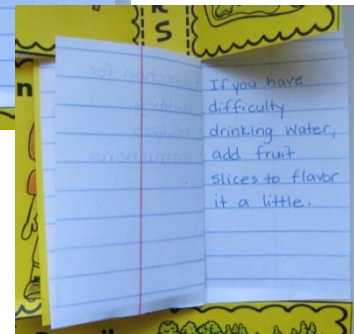 K
S
n
If you have
difficulty
drinking water,
add fruit
slices to flavor
it a little.